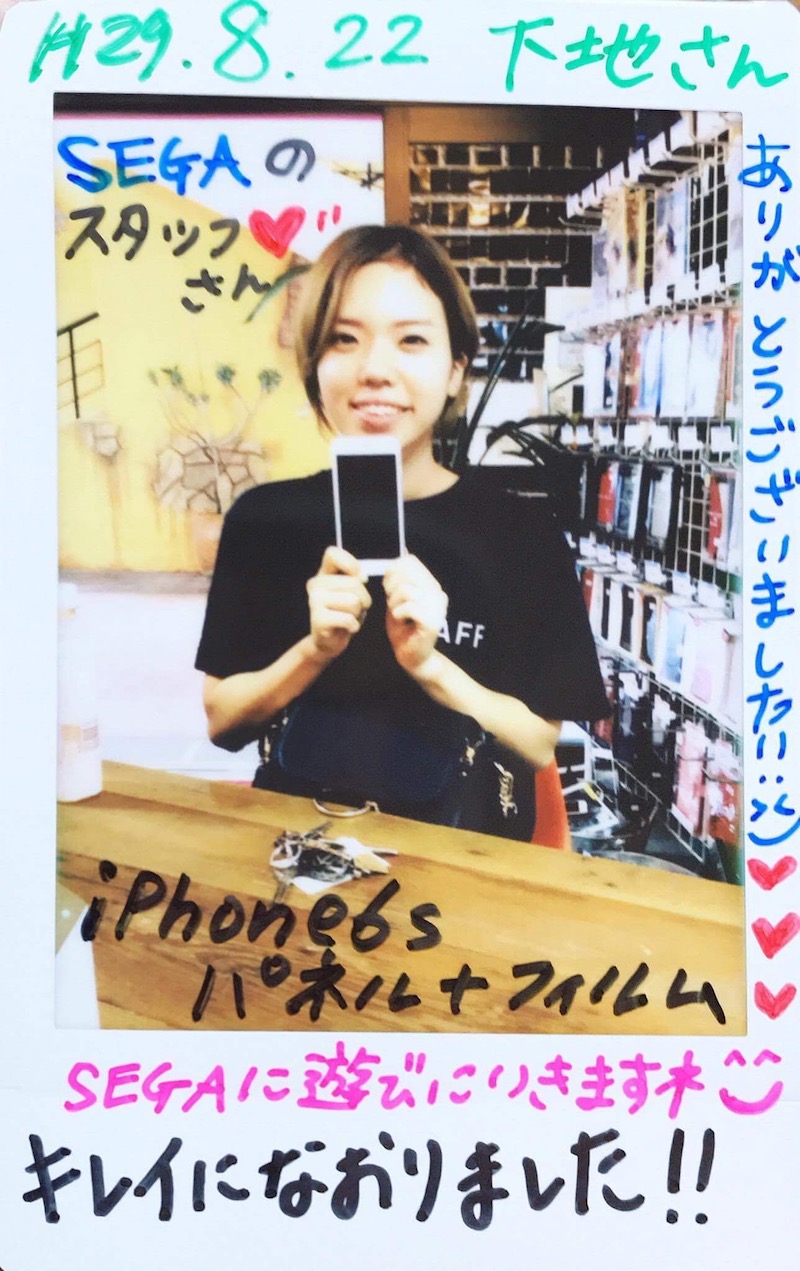 H29.8.22 下地さん
SEGAの
スタッフ
さん
ありがとうございました!!
AFF
iPhone6s
パネル+フィルム
SEGAに遊びにいきます
キレイになおりました!!